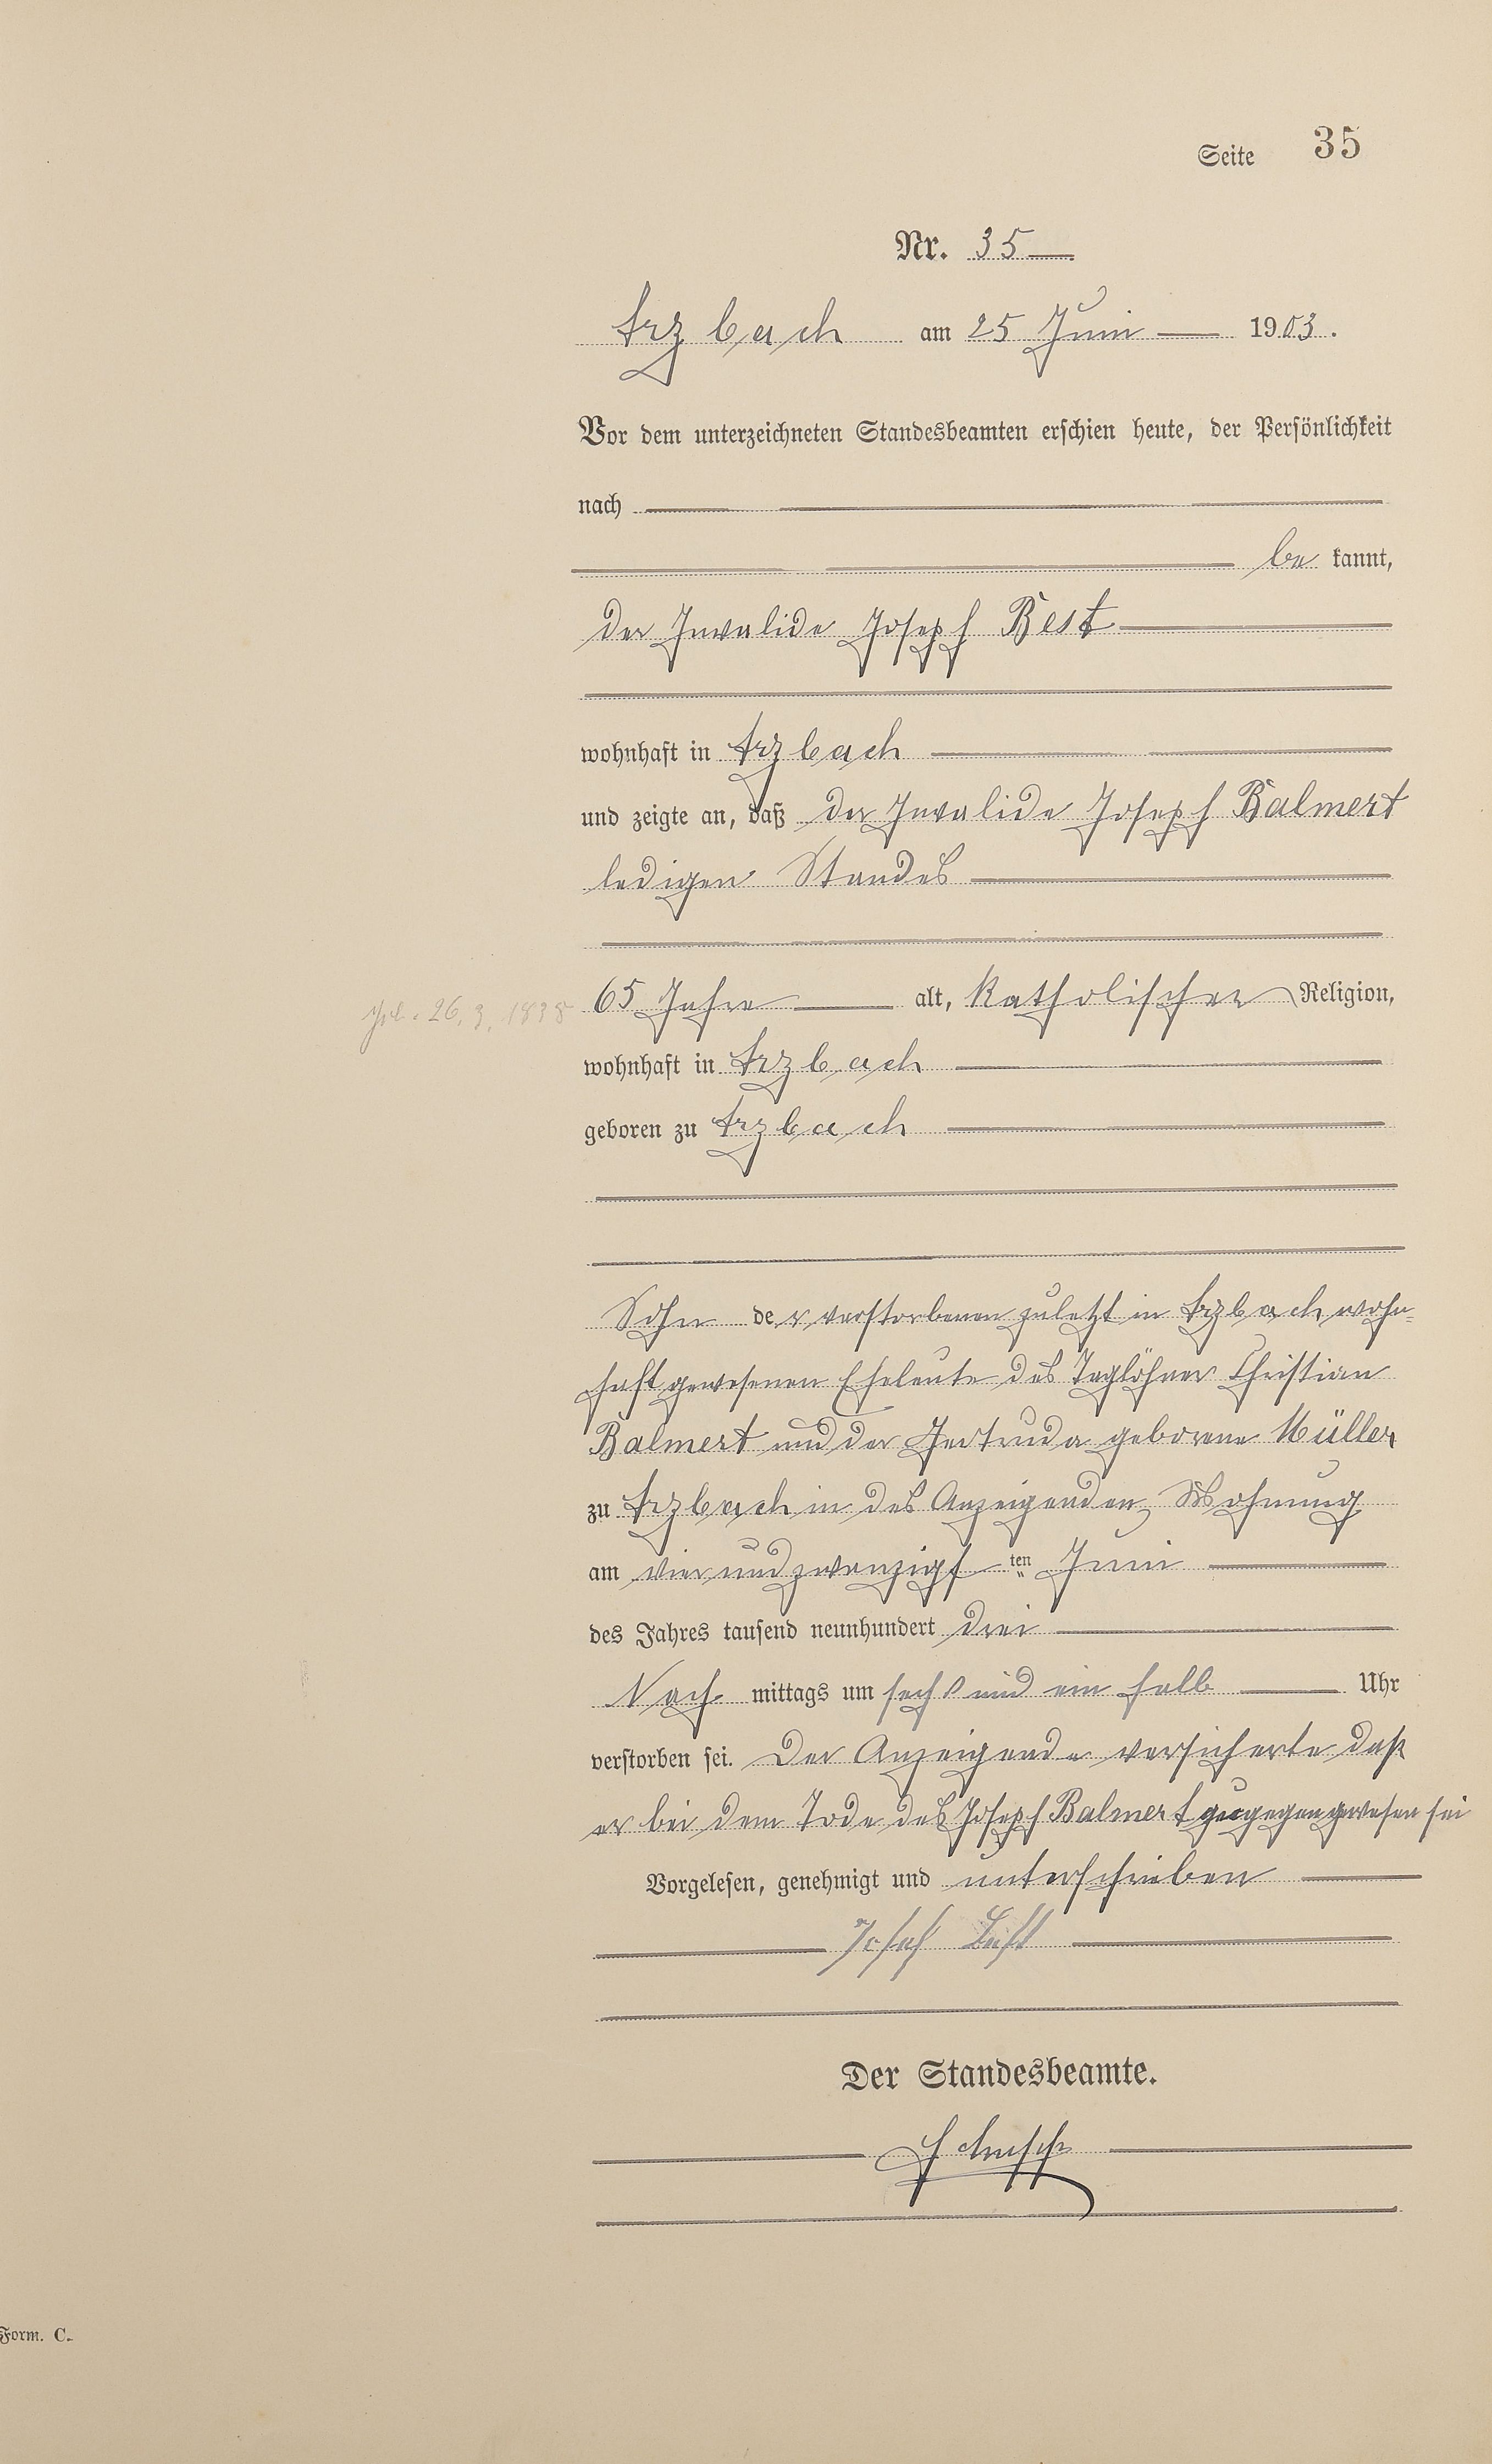 Seite 35
Nr. 35
Arzbach am 25 Juni 1903.
Vor dem unterzeichneten Standesbeamten erschien heute, der Persönlichkeit
nach
be kannt,
der Invalide Joseph Best
wohnhaft in Arzbach
und zeigte an, daß der Invalide Joseph Balmert
ledigen Standes
geb. 26.3.1838
65 Jahre alt, Katholischer Religion,
wohnhaft in Arzbach
geboren zu Arzbach
Sohn der verstorbenen zuletzt in Arzbach wohn-
haft gewesenen Eheleute des Taglöhner Christian
Balmert und der Gertruda geborene Müller
zu Arzbach in des Anzeigenden Wohnung
am vierundzwanzigsten Juni
des Jahres tausend neunhundert drei
Nach mittags um sechs und ein halb Uhr
verstorben sei. Der Anzeigende versicherte daß
er bei dem Tode des Joseph Balmert zugegen gewesen sei
Vorgelesen, genehmigt und unterschrieben
Josef Best
Der Standesbeamte.
Form. C.